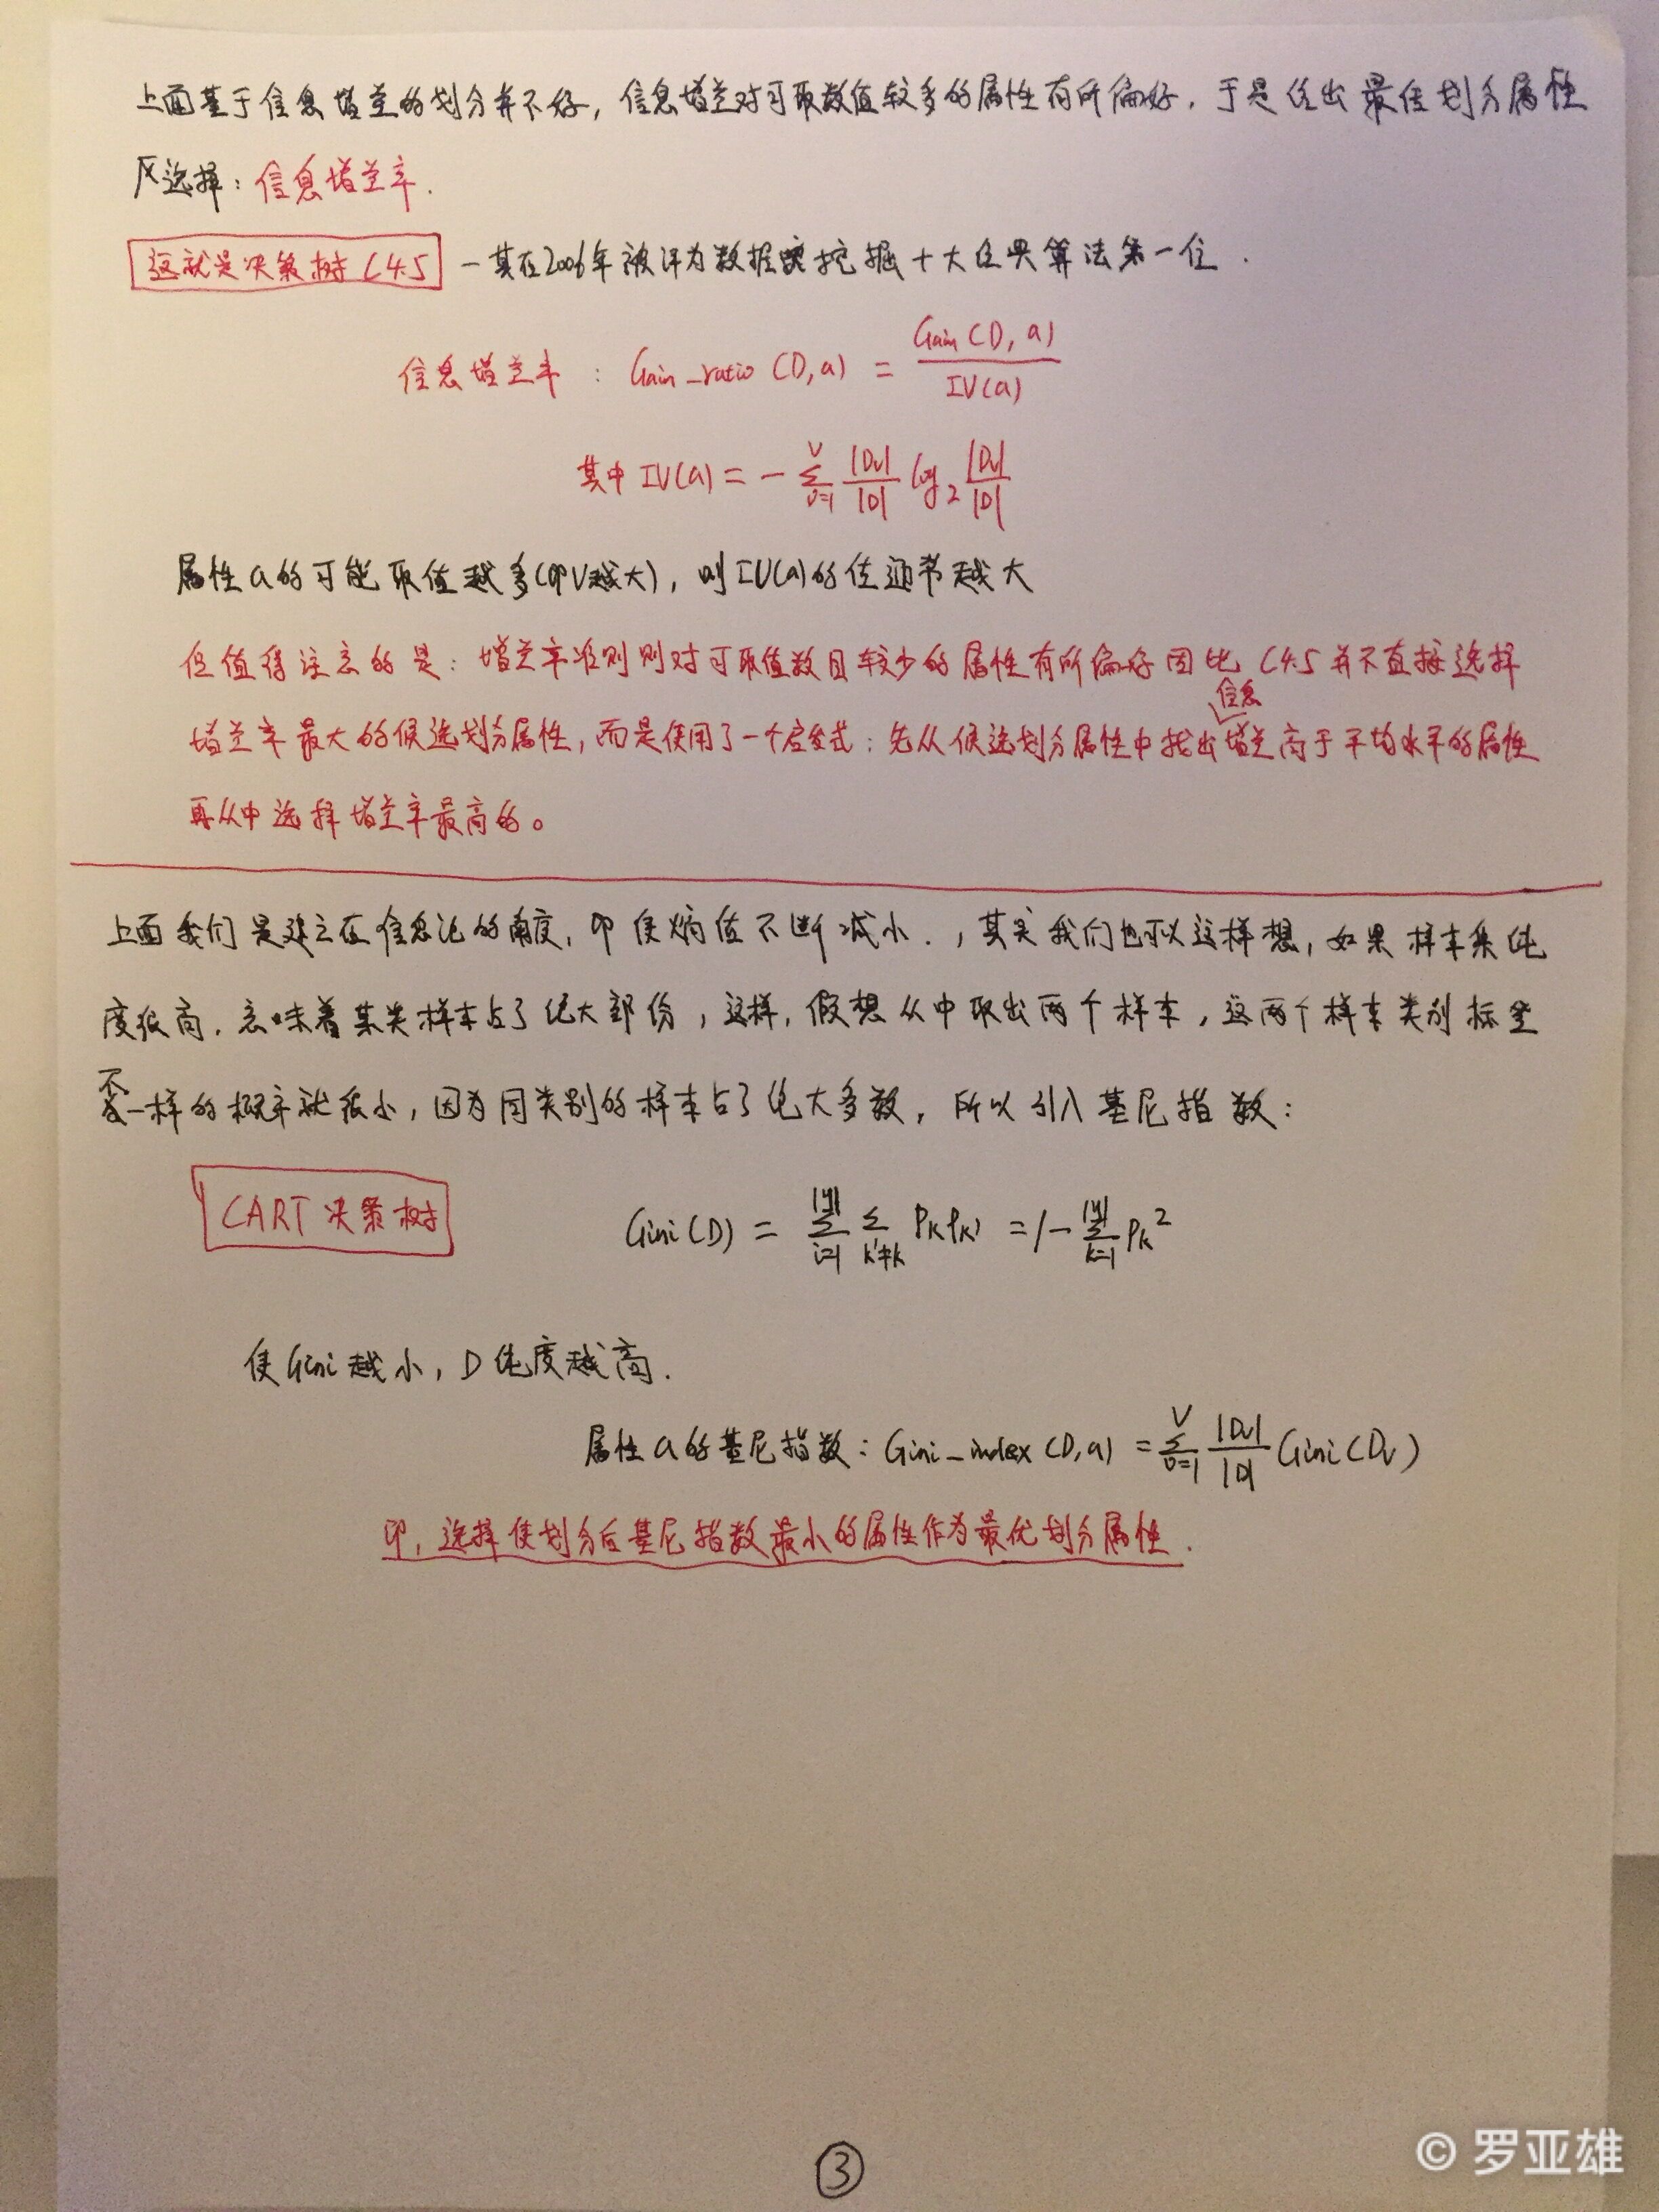 上面基于信息增益的划分并不好，信息增益对可取数值较多的属性有所偏好，于是给出最佳划分属性
选择：信息增益率.
这就是决策树 C4.5 —其在2006年被评为数据挖掘十大经典算法第一位.
信息增益率：Gain_ratio(D,a) = Gain(D,a) / IV(a)
其中 IV(a) = - ∑_{v=1}^{V} |Dv|/|D| log₂ |Dv|/|D|
属性a的可能取值越多(即V越大)，则IV(a)的值通常越大
但值得注意的是：增益率准则则对可取值数目较少的属性有所偏好因此 C4.5 并不直接选择
增益率最大的候选划分属性，而是使用了一个启发式：先从候选划分属性中找出信息增益高于平均水平的属性
再从中选择增益率最高的。
上面我们是建立在信息论的角度，即使熵值不断减小.，其实我们也可以这样想，如果样本集纯
度很高，意味着某类样本占了绝大部份，这样，假想从中取出两个样本，这两个样本类别标签
不一样的概率就很小，因为同类别的样本占了绝大多数，所以引入基尼指数：
CART 决策树
Gini(D) = ∑_{i=1}^{|y|} ∑_{k'≠k} Pk Pk' = 1 - ∑_{k=1}^{|y|} Pk²
使Gini越小，D纯度越高.
属性a的基尼指数：Gini_index(D,a) = ∑_{v=1}^{V} |Dv|/|D| Gini(Dv)
即，选择使划分后基尼指数最小的属性作为最优划分属性.
③
© 罗亚雄